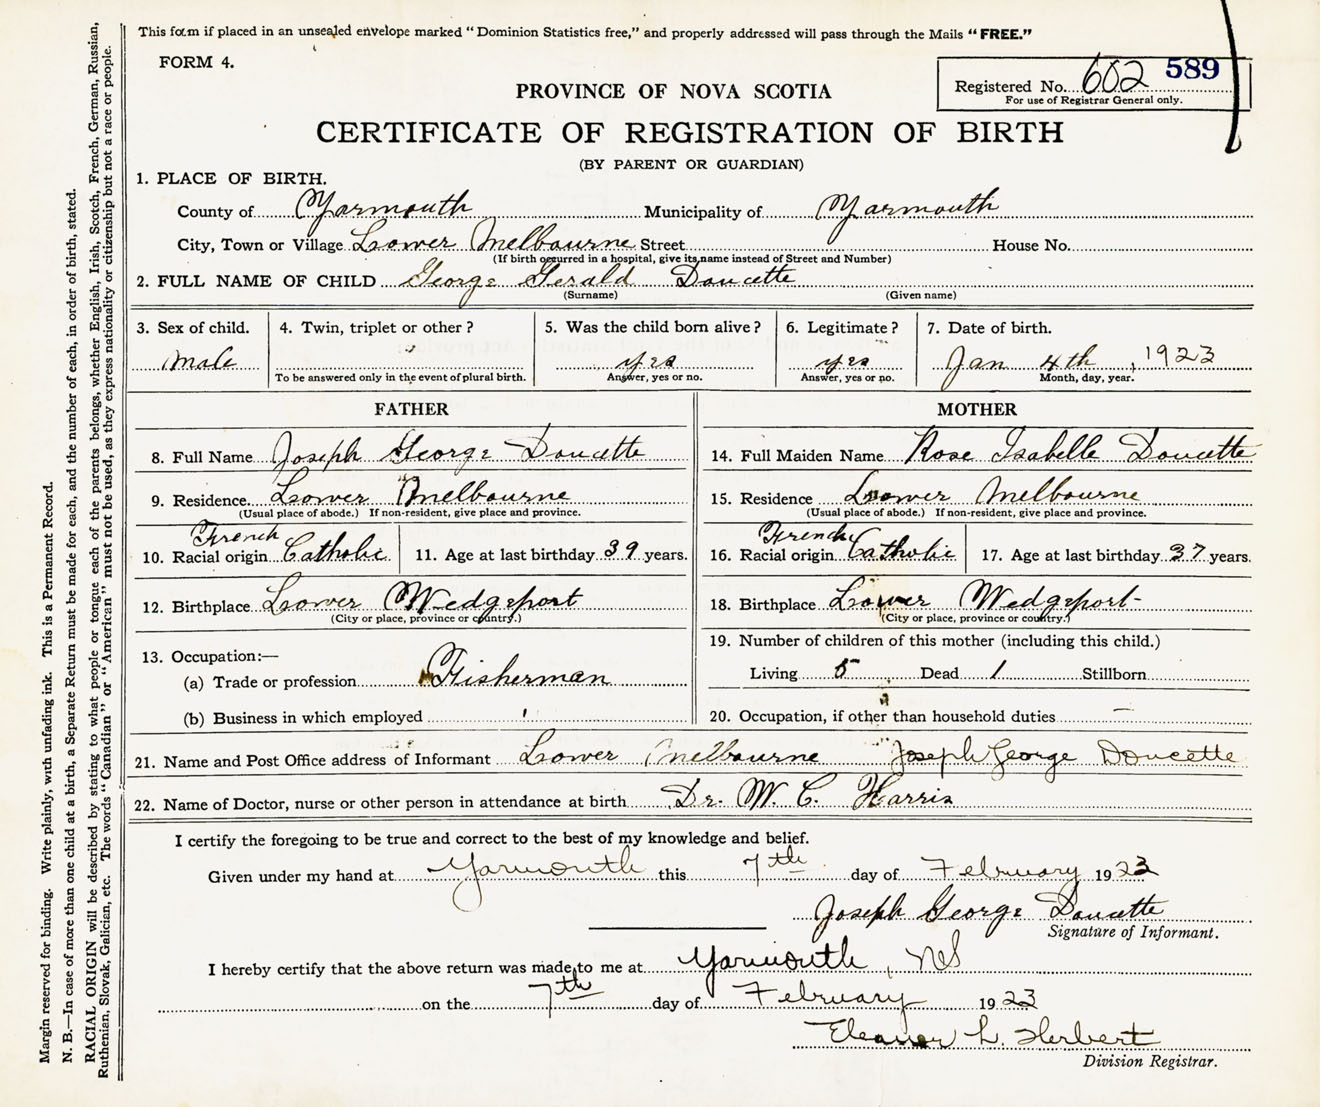 This form if placed in an unsealed envelope marked "Dominion Statistics free," and properly addressed will pass through the Mails "FREE."
FORM 4.
Registered No. 602 589
For use of Registrar General only.
PROVINCE OF NOVA SCOTIA
CERTIFICATE OF REGISTRATION OF BIRTH
(BY PARENT OR GUARDIAN)
1. PLACE OF BIRTH.
County of Yarmouth Municipality of Yarmouth
City, Town or Village Lower Melbourne Street House No.
(If birth occurred in a hospital, give its name instead of Street and Number)
2. FULL NAME OF CHILD George Gerald Doucette
(Surname) (Given name)
3. Sex of child. 4. Twin, triplet or other? 5. Was the child born alive? 6. Legitimate? 7. Date of birth.
male yes yes Jan 4th, 1923
To be answered only in the event of plural birth. Answer, yes or no. Answer, yes or no. Month, day, year.
FATHER MOTHER
8. Full Name Joseph George Doucette 14. Full Maiden Name Rose Isabelle Doucette
9. Residence Lower Melbourne 15. Residence Lower Melbourne
(Usual place of abode.) If non-resident, give place and province. (Usual place of abode.) If non-resident, give place and province.
French French
10. Racial origin Catholic 11. Age at last birthday 39 years. 16. Racial origin Catholic 17. Age at last birthday 37 years.
12. Birthplace Lower Wedgeport 18. Birthplace Lower Wedgeport
(City or place, province or country.) (City or place, province or country.)
13. Occupation:— 19. Number of children of this mother (including this child.)
(a) Trade or profession Fisherman Living 5 Dead 1 Stillborn
(b) Business in which employed 20. Occupation, if other than household duties —
21. Name and Post Office address of Informant Lower Melbourne Joseph George Doucette
22. Name of Doctor, nurse or other person in attendance at birth Dr. W. C. Harris
I certify the foregoing to be true and correct to the best of my knowledge and belief.
Given under my hand at Yarmouth this 7th day of February 1923
Joseph George Doucette
Signature of Informant.
I hereby certify that the above return was made to me at Yarmouth, NS
on the 7th day of February 1923
Eleanor L. Herbert
Division Registrar.
Margin reserved for binding. Write plainly, with unfading ink. This is a Permanent Record.
N. B.—In case of more than one child at a birth, a Separate Return must be made for each, and the number of each, in order of birth, stated.
RACIAL ORIGIN will be described by stating to what people or tongue each of the parents belongs, whether English, Irish, Scotch, French, German, Russian,
Ruthenian, Slovak, Galician, etc. The words "Canadian" or "American" must not be used, as they express nationality or citizenship but not a race or people.